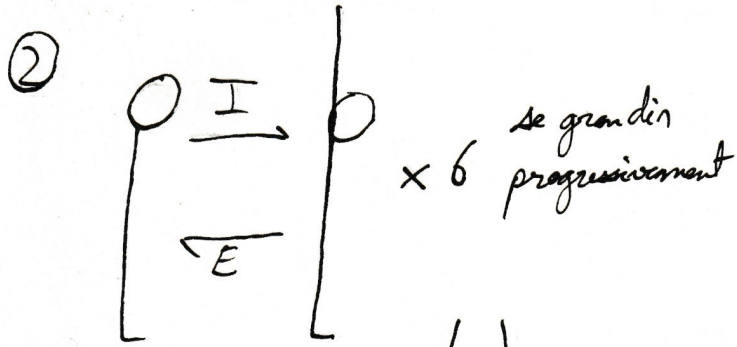 ②
I
E
× 6
se grandir
progressivement